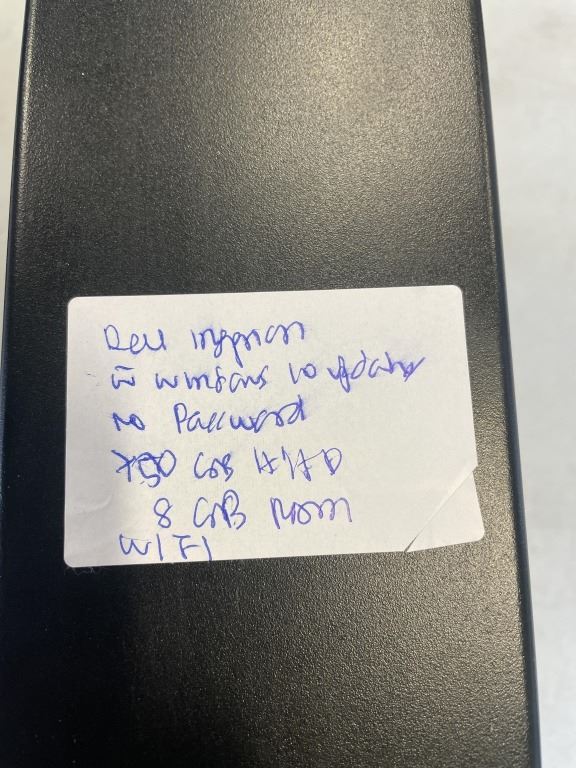 Dell inspiron
w windows 10 update
No Password
750 GB HHD
8 GB mem
WIFI